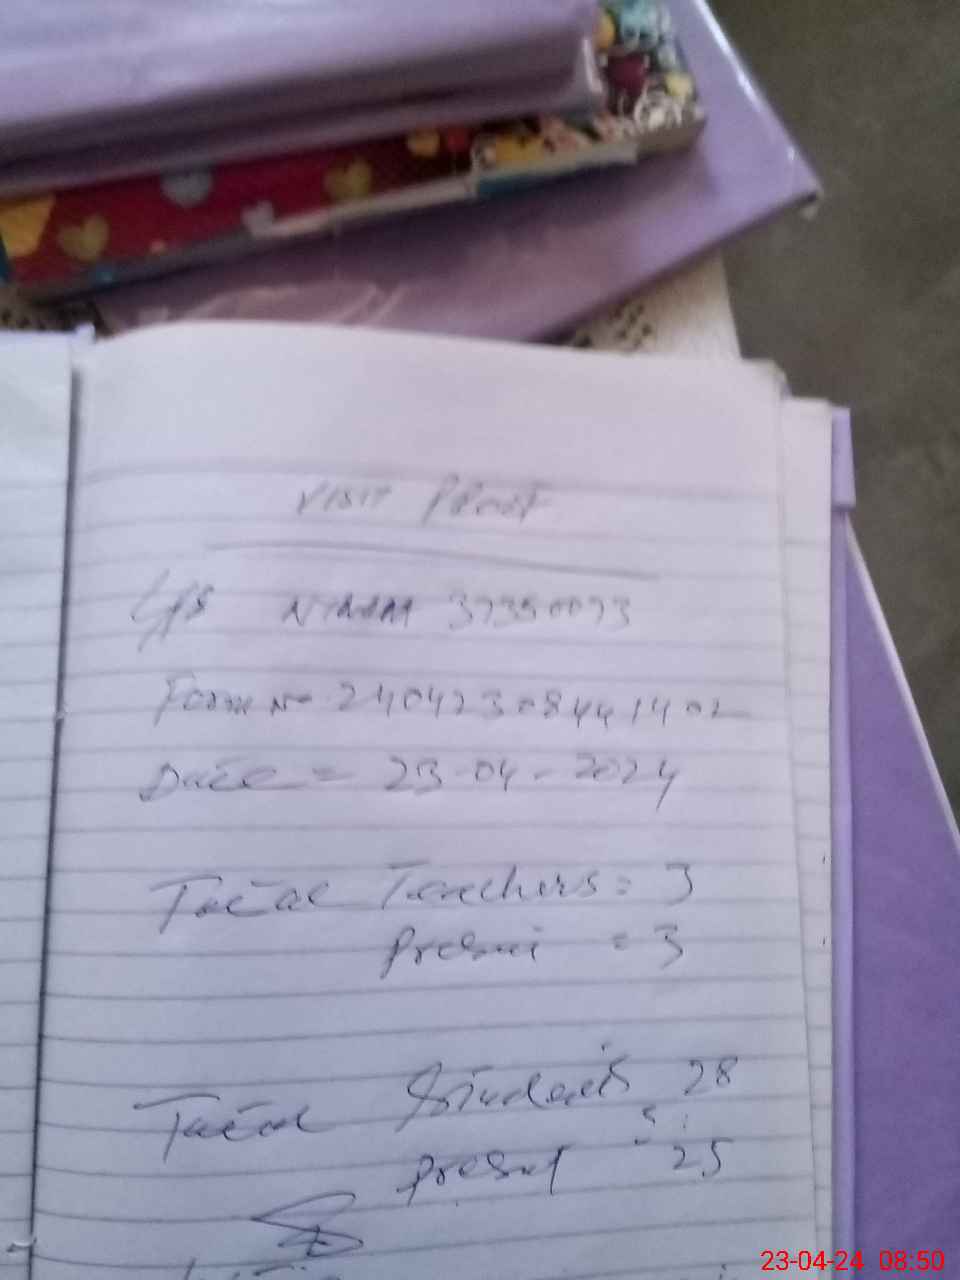 VISIT PROOF
GPS 37350073
Form No. 24042308441402
Date = 23-04-2024
Total Teachers = 3
Present = 3
Total Students 28
Present = 25
23-04-24 08:50